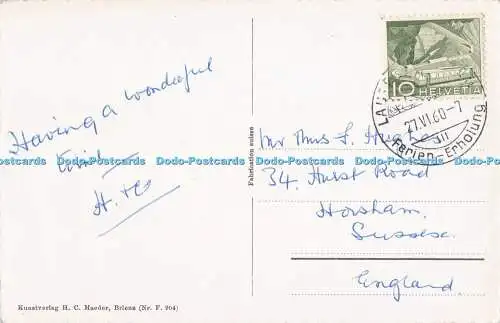 Having a wonderful
time
H. +
Kunstverlag H. C. Maeder, Brienz (Nr. F. 904)
Fabrication suisse
10 HELVETIA
27.VI.60-7
Ferien-Erholung
Mr Mrs F.
34, Hurst Road
Horsham.
Sussex.
England.
Dodo-Postcards Dodo-Postcards Dodo-Postcards Dodo-Postcards Dodo-Postcards